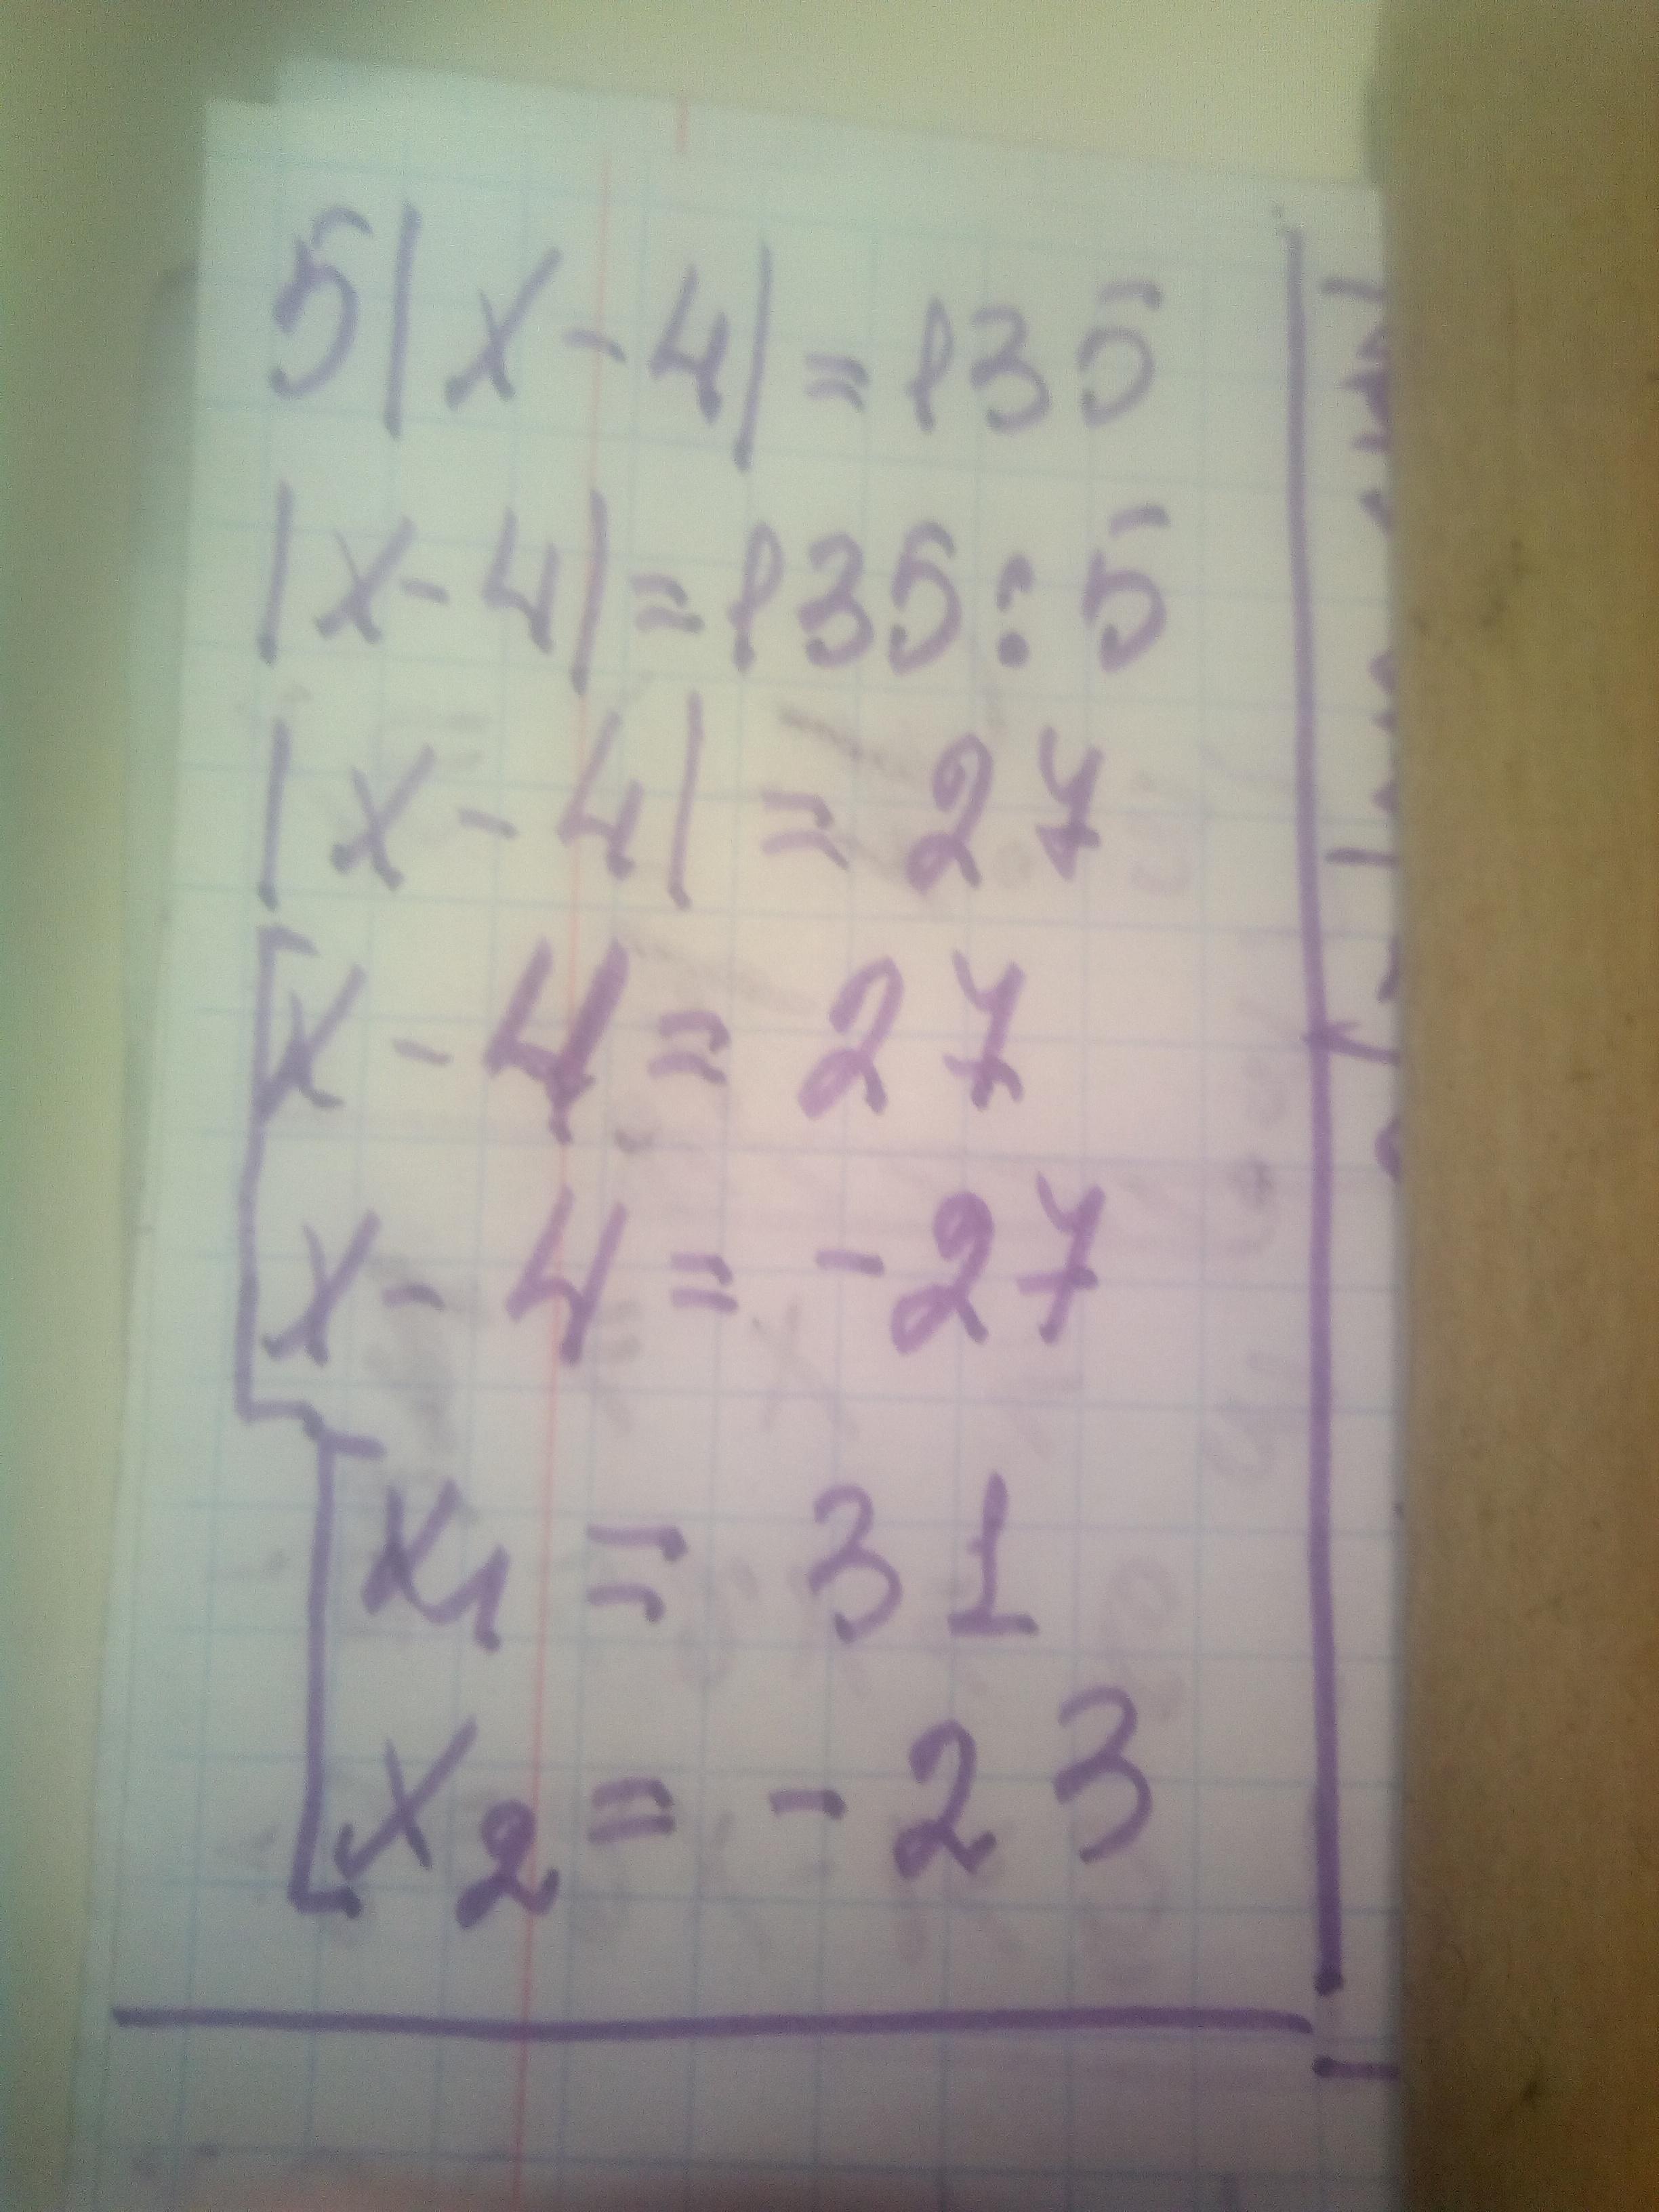 5|x-4|=135
|x-4|=135:5
|x-4|=27
x-4=27
x-4=-27
x1=31
x2=-23